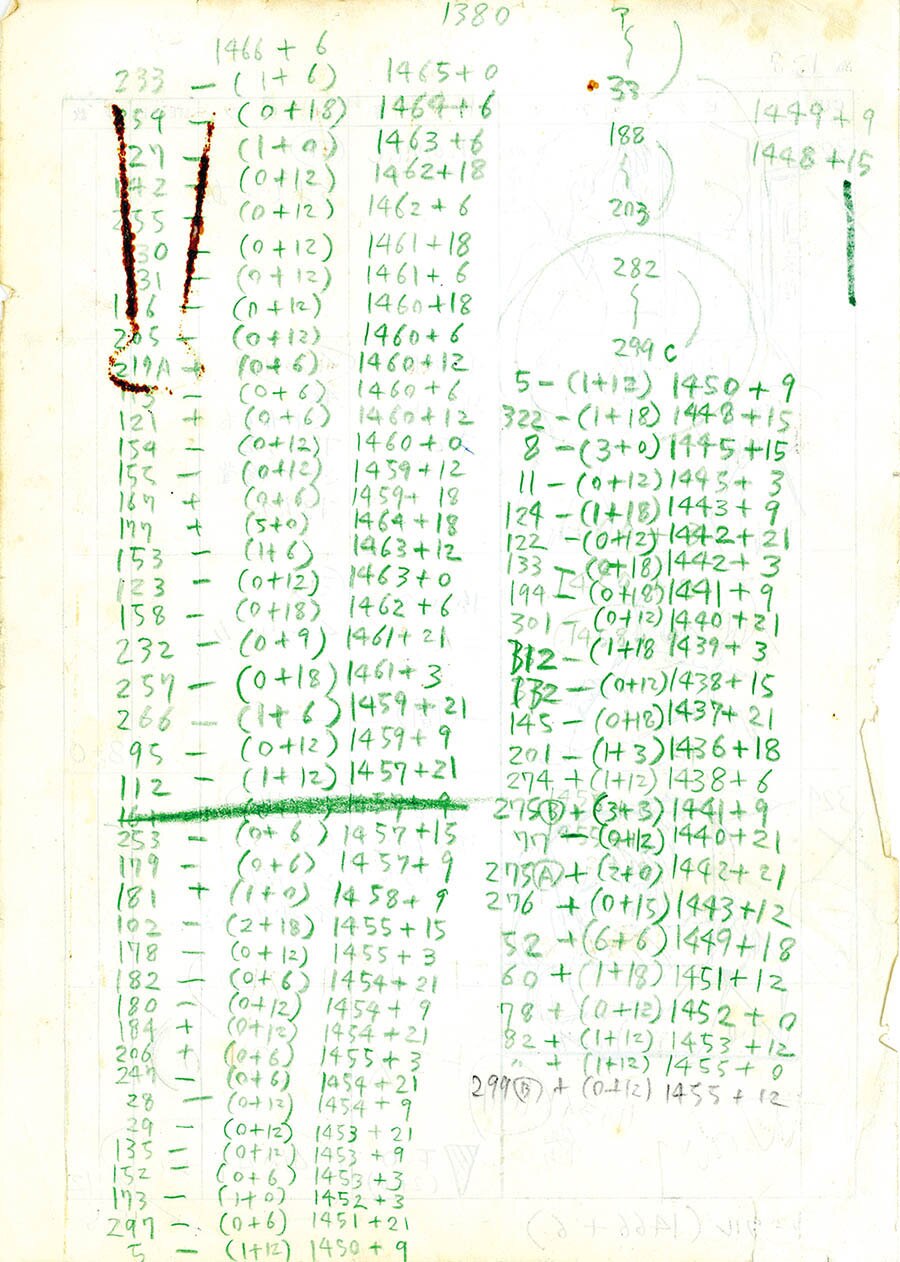 1380
1466 + 6
233 - (1+6) 1465+0
(0+18) 1464+6
27 - (1+0) 1463+6
142 - (0+12) 1462+18
(0+12) 1462+6
30 - (0+12) 1461+18
31 - (0+12) 1461+6
(0+12) 1460+18
205 - (0+12) 1460+6
219A + (0+6) 1460+12
113 - (0+6) 1460+6
121 + (0+6) 1460+12
154 - (0+12) 1460+0
155 - (0+12) 1459+12
167 + (0+6) 1459+18
177 + (5+0) 1464+18
153 - (1+6) 1463+12
123 - (0+12) 1463+0
158 - (0+18) 1462+6
232 - (0+9) 1461+21
257 - (0+18) 1461+3
266 - (1+6) 1459+21
95 - (0+12) 1459+9
112 - (1+12) 1457+21
253 - (0+6) 1457+15
179 - (0+6) 1457+9
181 + (1+0) 1458+9
102 - (2+18) 1455+15
178 - (0+12) 1455+3
182 - (0+6) 1454+21
180 - (0+12) 1454+9
184 + (0+12) 1454+21
206 + (0+6) 1455+3
247 - (0+6) 1454+21
28 - (0+12) 1454+9
29 - (0+12) 1453+21
135 - (0+12) 1453+9
152 - (0+6) 1453+3
173 - (1+0) 1452+3
297 - (0+6) 1451+21
5 - (1+12) 1450+9
33
188
203
282
299 C
1449+9
1448+15
5 - (1+12) 1450+9
322 - (1+18) 1448+15
8 - (3+0) 1445+15
11 - (0+12) 1445+3
124 - (1+18) 1443+9
122 - (0+12) 1442+21
133 - (0+18) 1442+3
194 - (0+18) 1441+9
301 - (0+12) 1440+21
312 - (1+18 1439+3
132 - (0+12) 1438+15
145 - (0+18) 1437+21
201 - (1+3) 1436+18
274 + (1+12) 1438+6
275(B) + (3+3) 1441+9
77 - (0+12) 1440+21
275(A) + (2+0) 1442+21
276 + (0+15) 1443+12
52 + (6+6) 1449+18
60 + (1+18) 1451+12
78 + (0+12) 1452+0
82 + (1+12) 1453+12
" + (1+12) 1455+0
299(B) + (0+12) 1455+12